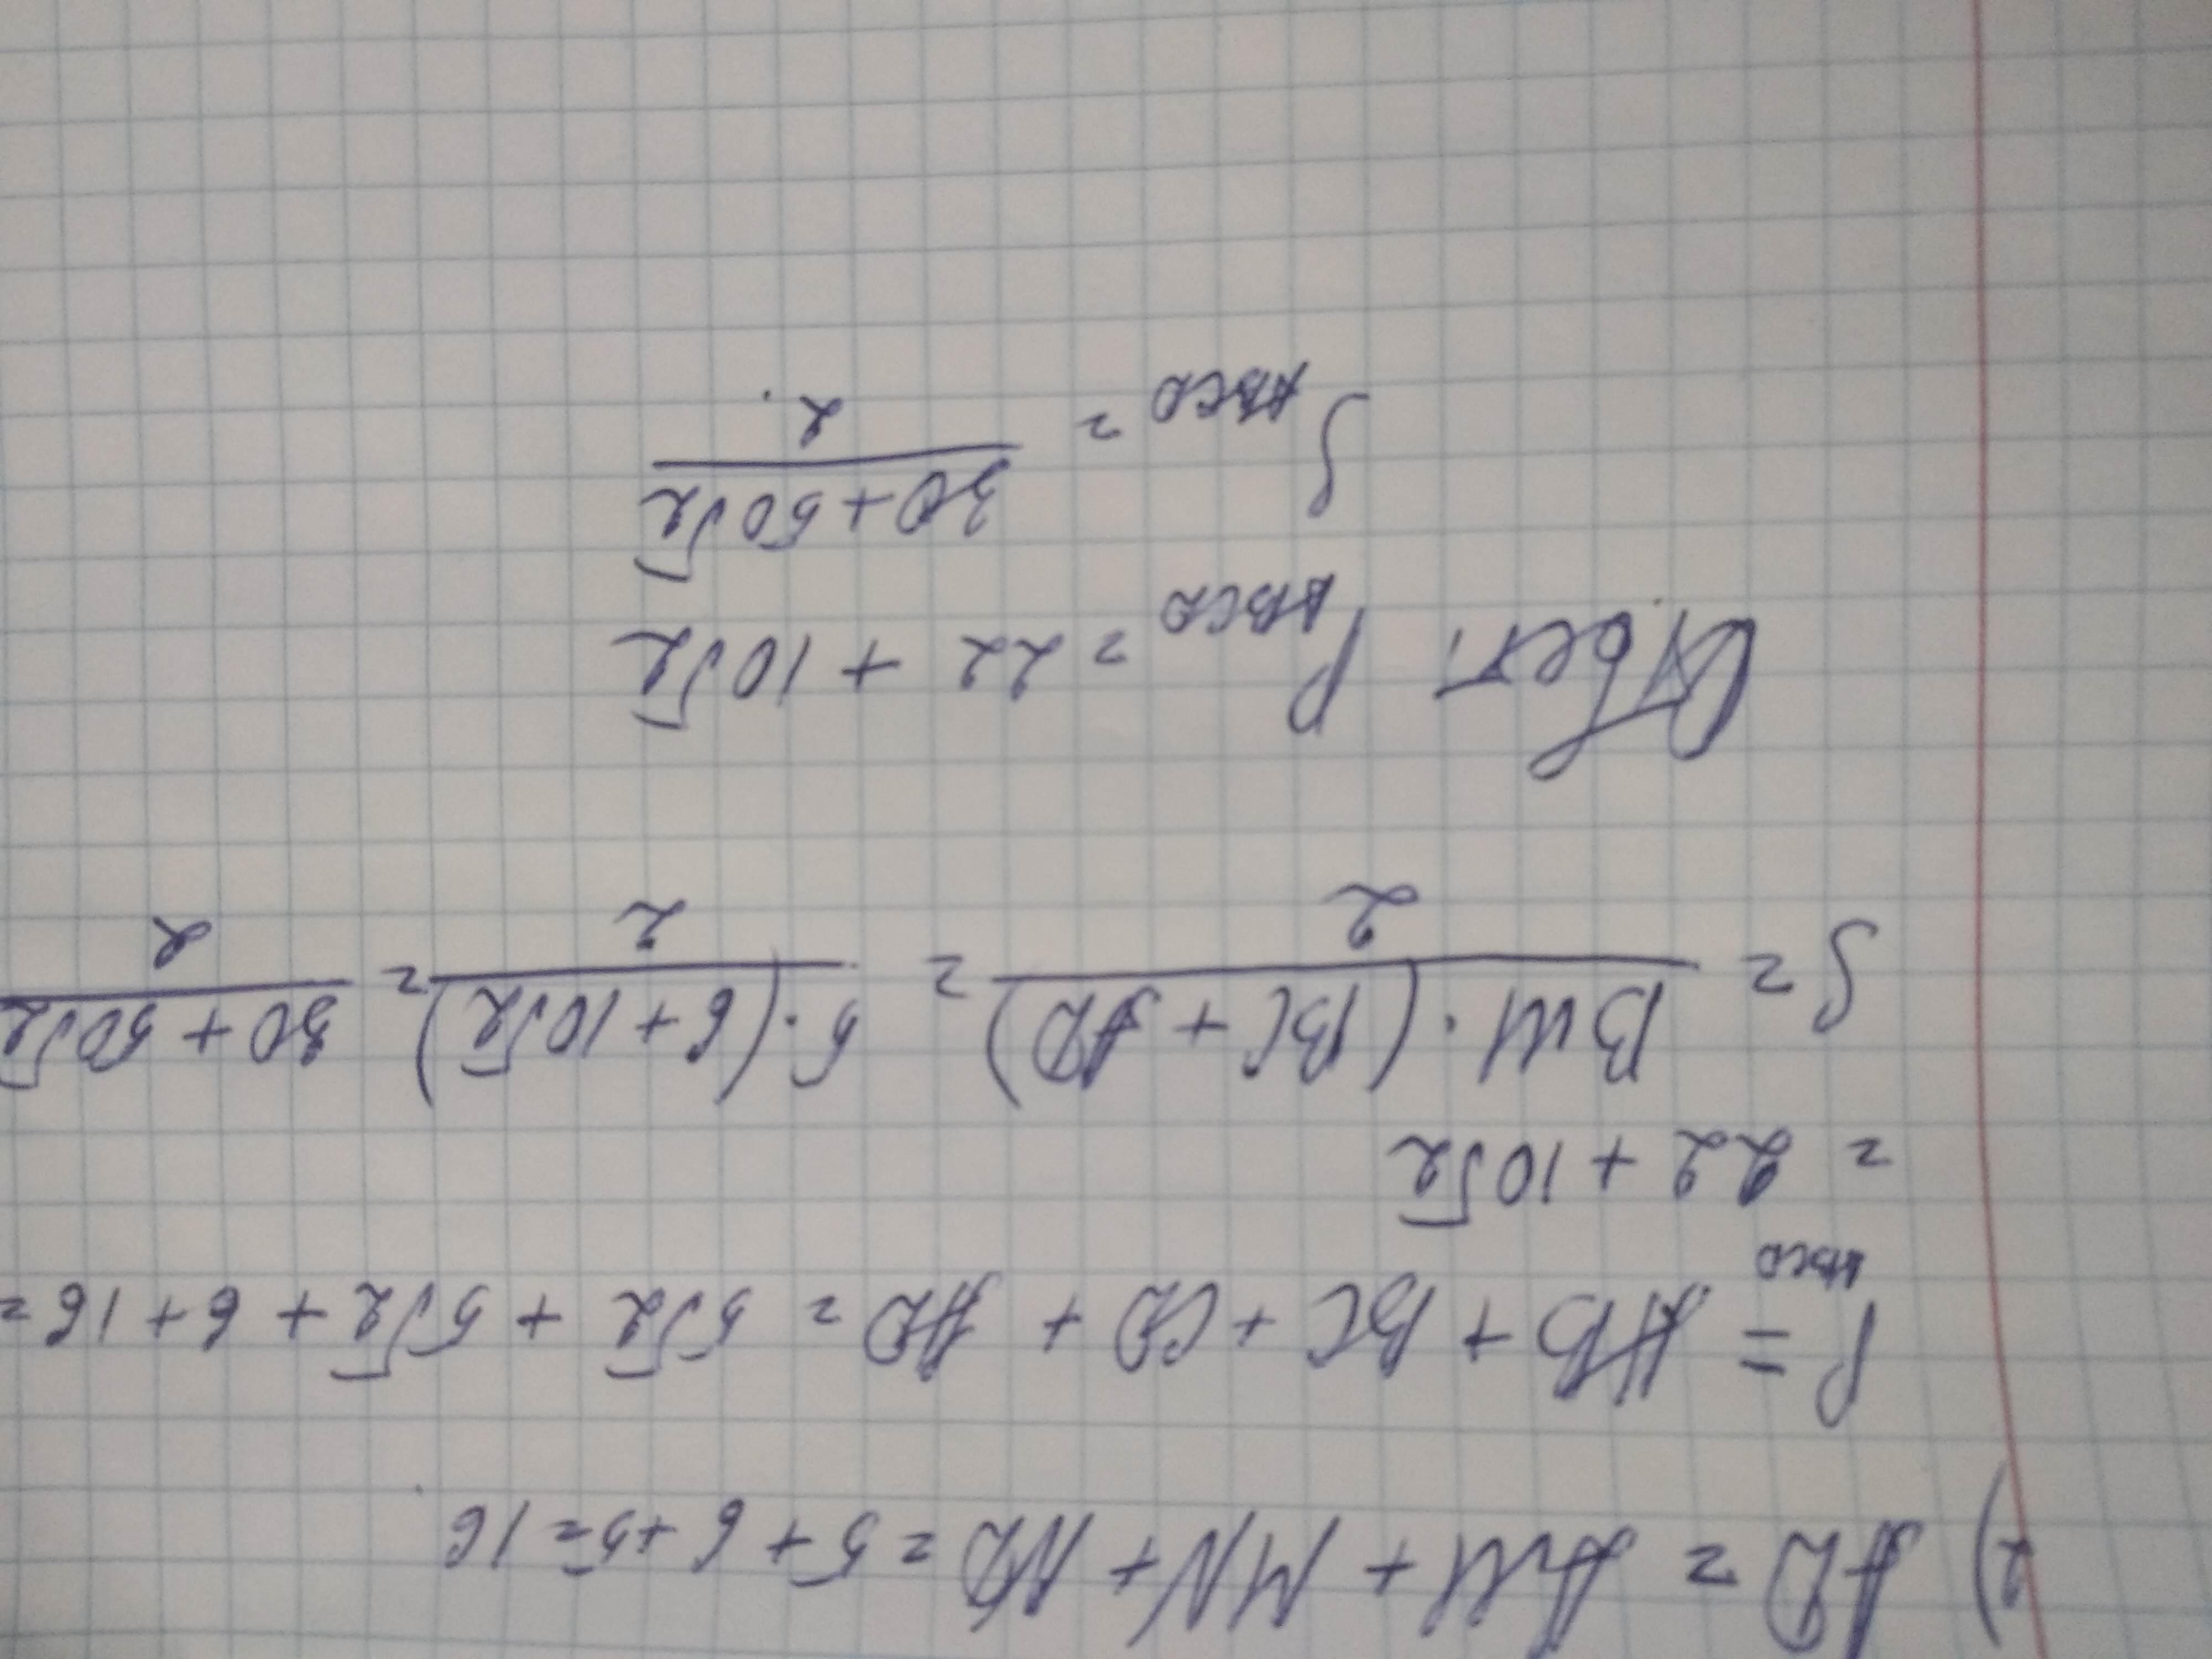 2) AD = AM + MN + ND = 5 + 6 + 5 = 16
P ABCD = AB + BC + CD + AD = 5√2 + 5√2 + 6 + 16 =
= 22 + 10√2
S = BM · (BC + AD) / 2 = 5 · (6 + 10√2) / 2 = 30 + 50√2 / 2
Ответ: P ABCD = 22 + 10√2
S ABCD = 30 + 50√2 / 2.